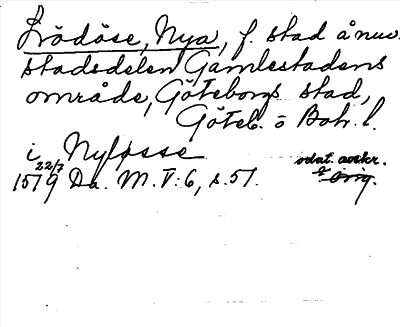 Lödöse, Nya, f. stad å nuv.
stadsdelen Gamlestadens
område, Göteborgs stad,
Göteb. o Boh. l.
i Nyløsse
22/7
1579 Da. M. V:6, s. 51. odat. avskr.
orig.